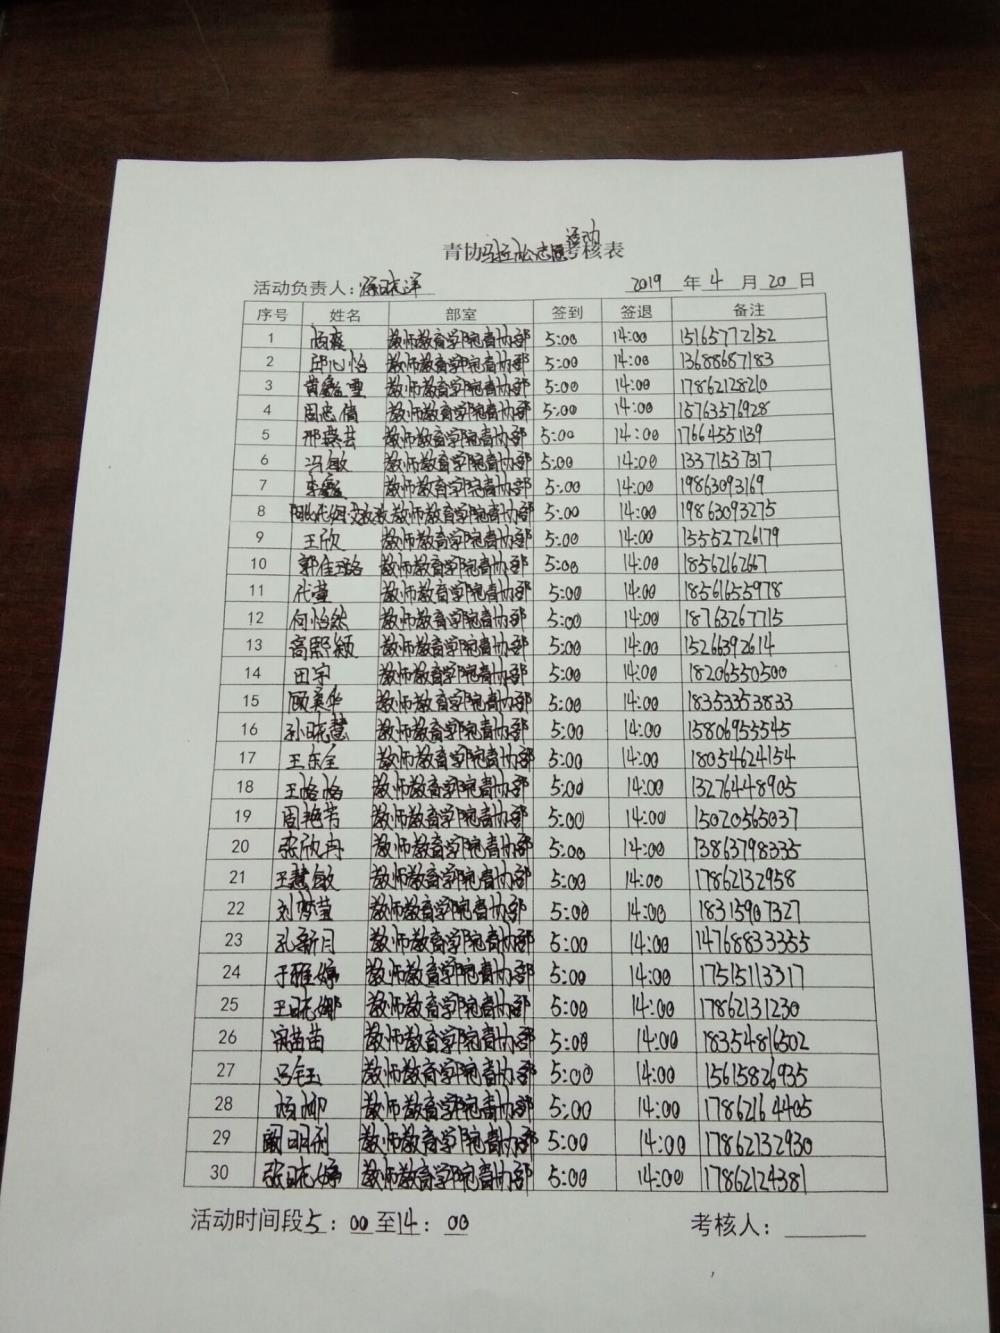 活动
青协马拉松志愿考核表
活动负责人：徐晓洋 2019 年 4 月 20 日
序号 姓名 部室 签到 签退 备注
1 杨森 教师教育学院青协部 5:00 14:00 15165772152
2 邱心怡 教师教育学院青协部 5:00 14:00 13688687183
3 黄鑫雪 教师教育学院青协部 5:00 14:00 17862128210
4 周忠倩 教师教育学院青协部 5:00 14:00 15763576928
5 邢燕芸 教师教育学院青协部 5:00 14:00 1766455139
6 冯敏 教师教育学院青协部 5:00 14:00 13371537317
7 李鑫 教师教育学院青协部 5:00 14:00 19863093169
8 教师教育学院青协部 5:00 14:00 19863093275
9 王欣 教师教育学院青协部 5:00 14:00 15552726179
10 郭佳璐 教师教育学院青协部 5:00 14:00 18562162667
11 代萱 教师教育学院青协部 5:00 14:00 18561655978
12 何怡然 教师教育学院青协部 5:00 14:00 18763267715
13 高熙颖 教师教育学院青协部 5:00 14:00 15266392614
14 田宇 教师教育学院青协部 5:00 14:00 18206550500
15 顾美华 教师教育学院青协部 5:00 14:00 18353353833
16 孙晓慧 教师教育学院青协部 5:00 14:00 15806955545
17 王东全 教师教育学院青协部 5:00 14:00 18054624154
18 王恪怡 教师教育学院青协部 5:00 14:00 13276448905
19 周艳芳 教师教育学院青协部 5:00 14:00 15020565037
20 张欣冉 教师教育学院青协部 5:00 14:00 13863798335
21 王慧敏 教师教育学院青协部 5:00 14:00 17862132958
22 刘梦莹 教师教育学院青协部 5:00 14:00 18315907327
23 孔新月 教师教育学院青协部 5:00 14:00 14768833355
24 于雅婷 教师教育学院青协部 5:00 14:00 17515113317
25 王晓娜 教师教育学院青协部 5:00 14:00 17862131230
26 宋苗苗 教师教育学院青协部 5:00 14:00 18354816502
27 冯钰 教师教育学院青协部 5:00 14:00 15615826935
28 杨柳 教师教育学院青协部 5:00 14:00 17862164405
29 阚明利 教师教育学院青协部 5:00 14:00 17862132930
30 张晓婷 教师教育学院青协部 5:00 14:00 17862124381
活动时间段5：00至14：00 考核人：